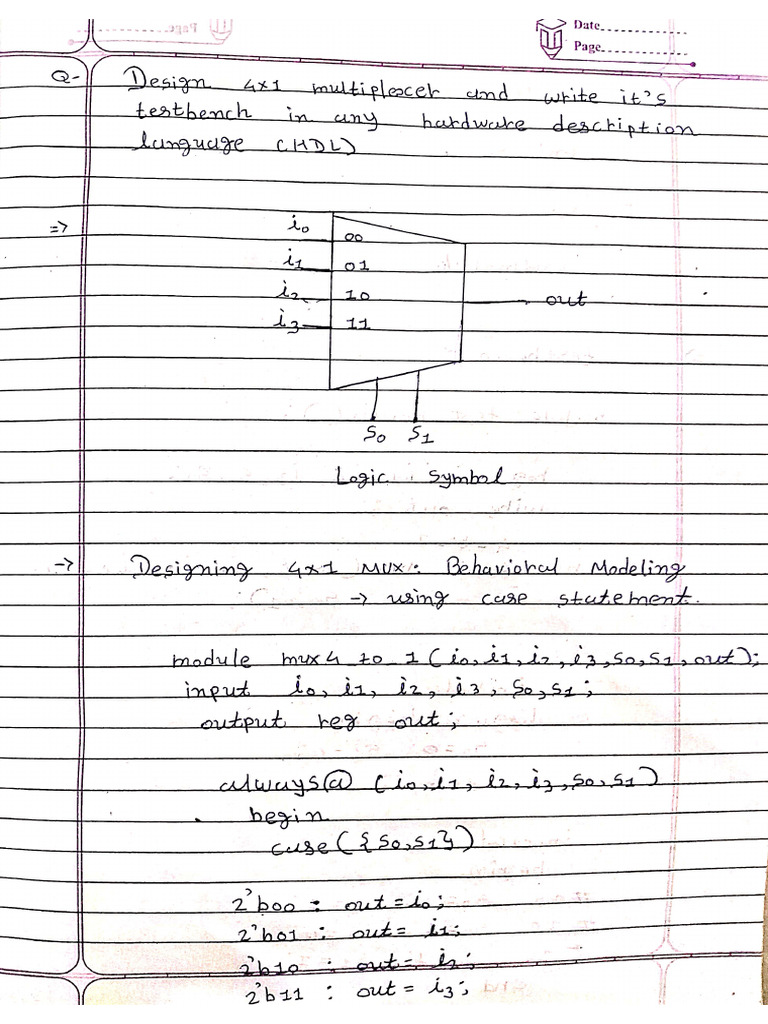 Date
Page
Q- Design 4x1 multiplexer and write it's
testbench in any hardware description
language (HDL)
=>
i0 00
i1 01
i2 10 out
i3 11
S0 S1
Logic symbol
-> Designing 4x1 MUX: Behavioral Modeling
-> using case statement.
module mux4_to_1 (i0, i1, i2, i3, s0, s1, out);
input i0, i1, i2, i3, s0, s1;
output reg out;
always@ (i0, i1, i2, i3, s0, s1)
begin
case({s0,s1})
2'b00 : out = i0;
2'b01 : out = i1;
2'b10 : out = i2;
2'b11 : out = i3;